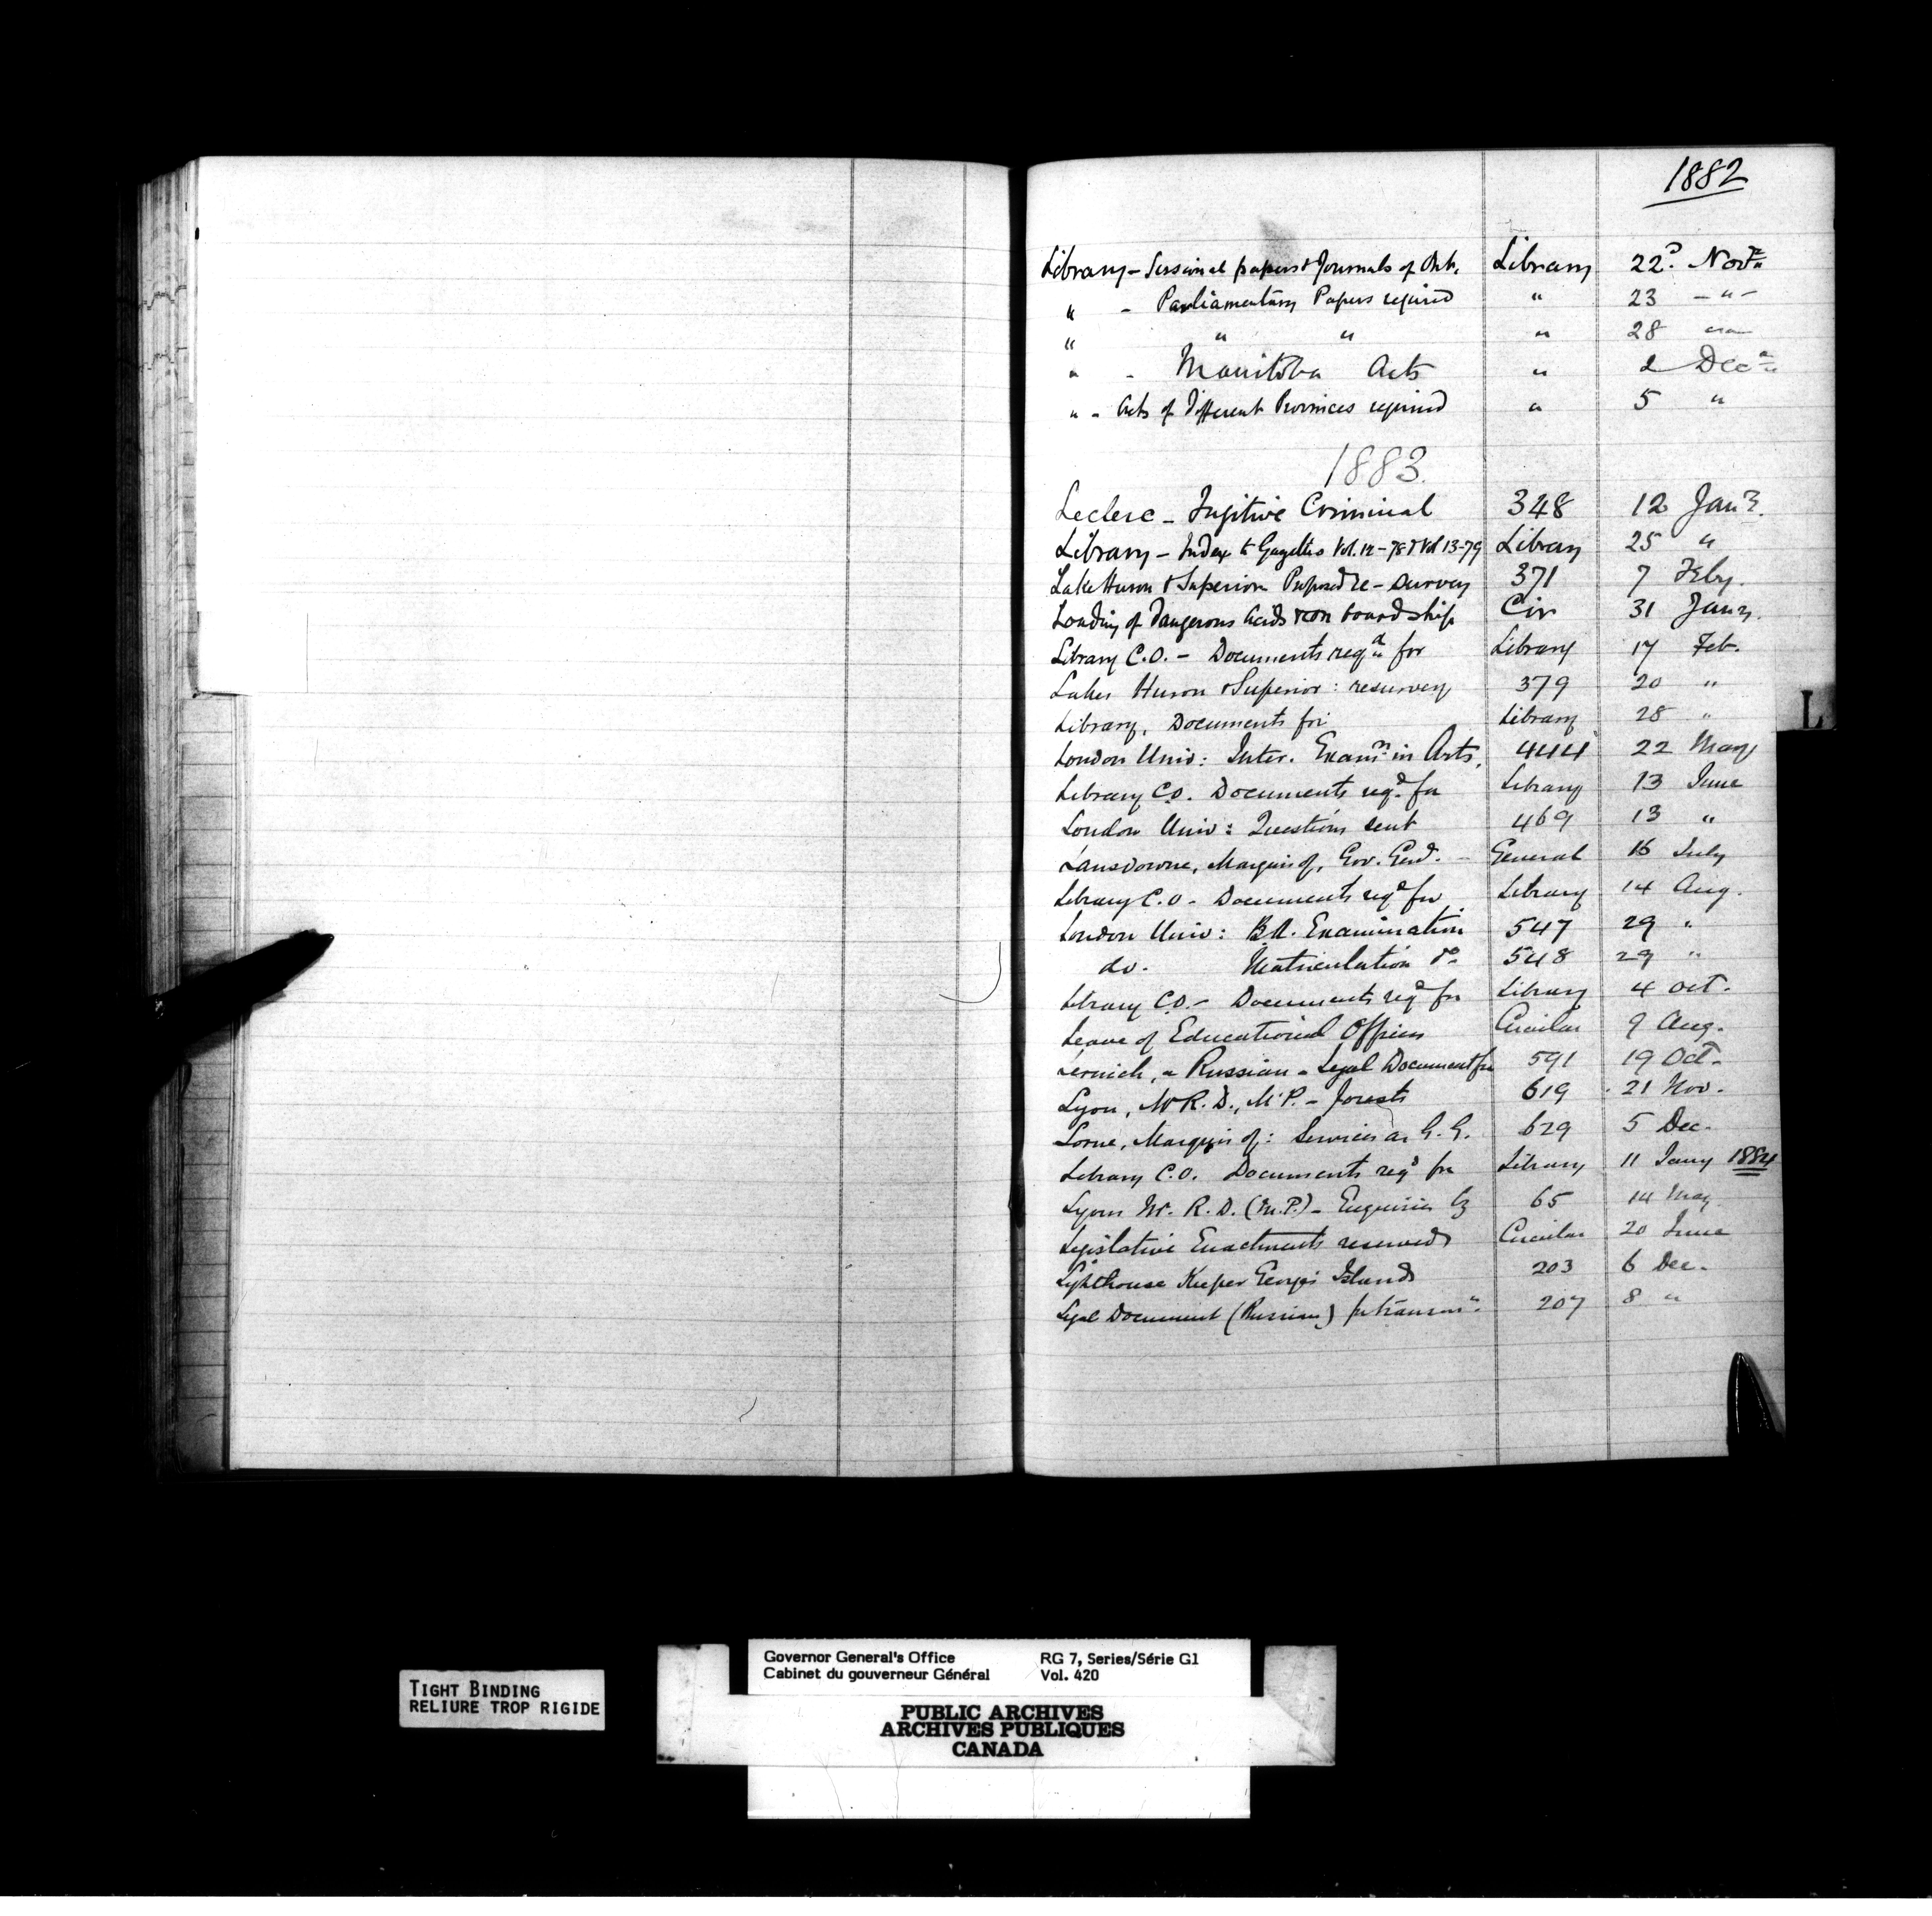 1882
Library - Sessional papers & Journals of Ont. Library 22d. Novr
" - Parliamentary Papers required " 23 - " -
" " " " 28 "
" - Manitoba Acts " 2 Decr
" - Acts of Different Provinces required " 5 "
1883.
Leclerc - Fugitive Criminal 348 12 Jany.
Library - Index to Gazettes Vol. 12 - 78 & Vol 13-79 Library 25 "
Lake Huron & Superior Proposed re-survey 371 7 Feby.
Loading of Dangerous Acids &c on board ship Cir 31 Jany.
Library C.O. - Documents reqd for Library 17 Feb.
Lakes Huron & Superior: resurvey 379 20 "
Library, Documents for Library 28 "
London Univ: Inter. Examn in Arts. 444 22 May
Library C.O. Documents reqd for Library 13 June
London Univ: Questions sent 469 13 "
Lansdowne, Marquis of, Gov. Genl. - General 16 July
Library C.O. - Documents reqd for Library 14 Aug.
London Univ: B.A. Examination 547 29 "
do. Matriculation do 548 29 "
Library C.O. - Documents reqd for Library 4 Oct.
Leave of Educational Officers Circular 9 Aug.
a Russian - Legal Document for 591 19 Oct.
Lyon, Mr R. D., M.P. - Forests 619 21 Nov.
Lorne, Marquis of: Services as G.G. 629 5 Dec.
Library C.O. Documents reqd for Library 11 Jany 1884
Lyons Mr. R. D. (M.P.) - Enquiries by 65 14 May
Legislative Enactments reserved Circular 20 June
Lighthouse Keeper Georges Island 203 6 Dec.
Legal Document (Russian) for transmn. 207 8 "
L
TIGHT BINDING
RELIURE TROP RIGIDE
Governor General's Office RG 7, Series/Série G1
Cabinet du gouverneur Général Vol. 420
PUBLIC ARCHIVES
ARCHIVES PUBLIQUES
CANADA